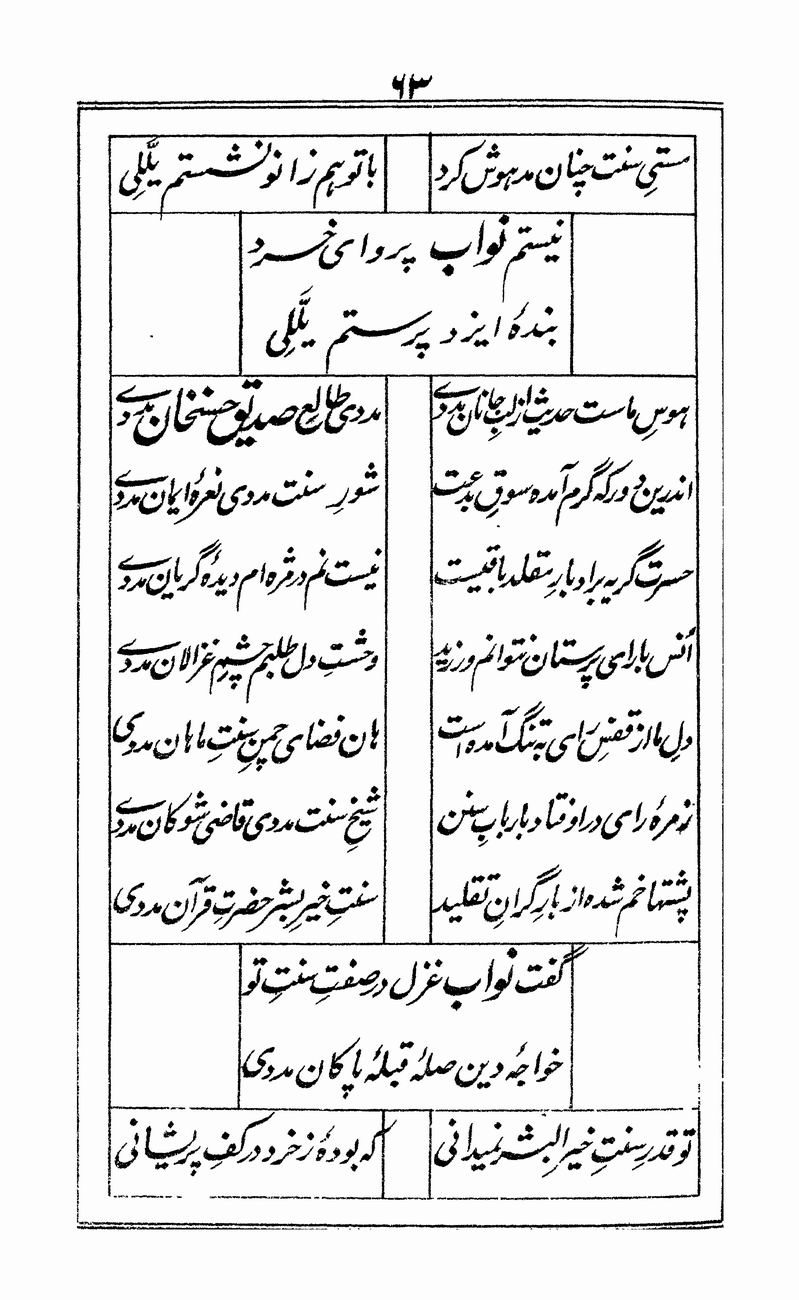 ۶۳
مستیِ سنت چنان مدہوش کرد با تو ہم زانو نشستم یَلَّلِی
نیستم نواب پروای خرد
بندۂ ایزد پرستم یَلَّلِی
ہوسِ ماست حدیث از لبِ جانان مددے مددی طالعِ صدیق حسنخان مددے
اندرین دورکہ گرم آمدہ سوقِ بدعت شورِ سنت مددی نعرۂ ایمان مددے
حسرتِ گریہ بر ادبارِ مقلد باقیست نیست نم در مژہ ام دیدۂ گریان مددے
اُنس با رای پرستان نتوانم ورزید وحشتِ دل طلبم چشمِ غزالان مددے
دلِ ما از قفسِ رای بہ تنگ آمدہ است ہان فضای چمنِ سنتِ ماہان مددی
زمرۂ رای در اوفتاد باربابِ سنن شیخِ سنت مددی قاضی شوکان مددے
پشتہا خم شدہ از بارِ گرانِ تقلید سنتِ خیرِ بشر حضرتِ قرآن مددی
گفت نواب غزل در صفتِ سنتِ تو
خواجۂ دین صلۂ قبلۂ پاکان مددی
تو قدرِ سنتِ خیر البشر نمیدانی کہ بودۂ ز خرد در کفِ پریشانی